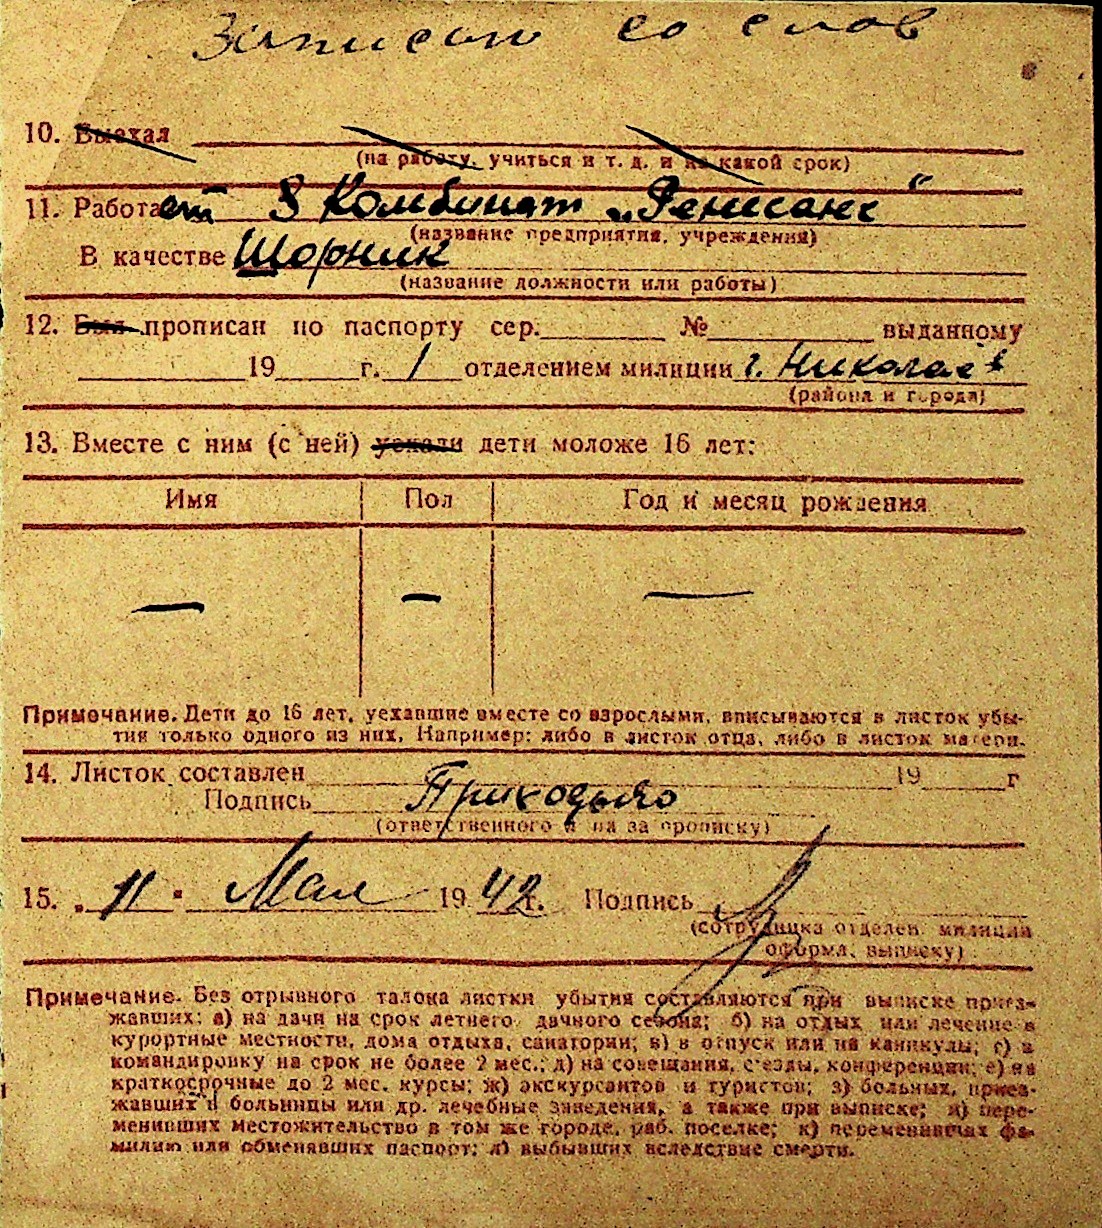 Записан со слов
10. Выехал
(на работу, учиться и т. д. и на какой срок)
11. Работает в Комбинат „Ренисанс“
(название предприятия, учреждения)
В качестве Шорник
(название должности или работы)
12. Был прописан по паспорту сер. № выданному
19 г. 1 отделением милиции г. Николаев
(района и города)
13. Вместе с ним (с ней) уехали дети моложе 16 лет:
Имя Пол Год и месяц рождения
— — —
Примечание. Дети до 16 лет, уехавшие вместе со взрослыми, вписываются в листок убы-
тия только одного из них. Например: либо в листок отца, либо в листок матери.
14. Листок составлен 19 г
Подпись Приходько
(ответственного за прописку)
15. „11" Мая 1942 г. Подпись
(сотрудника отделен. милиции
оформ. выписку)
Примечание. Без отрывного талона листки убытия составляются при выписке приез-
жавших: а) на дачи на срок летнего дачного сезона; б) на отдых или лечение в
курортные местности, дома отдыха, санатории; в) в отпуск или на каникулы; г) в
командировку на срок не более 2 мес.; д) на совещания, с'езды, конференции; е) на
краткосрочные до 2 мес. курсы; ж) экскурсантов и туристов; з) больных, приез-
жавших в больницы или др. лечебные заведения, а также при выписке; и) пере-
менивших местожительство в том же городе, раб. поселке; к) переменивших фа-
милию или обменявших паспорт; л) выбывших вследствие смерти.